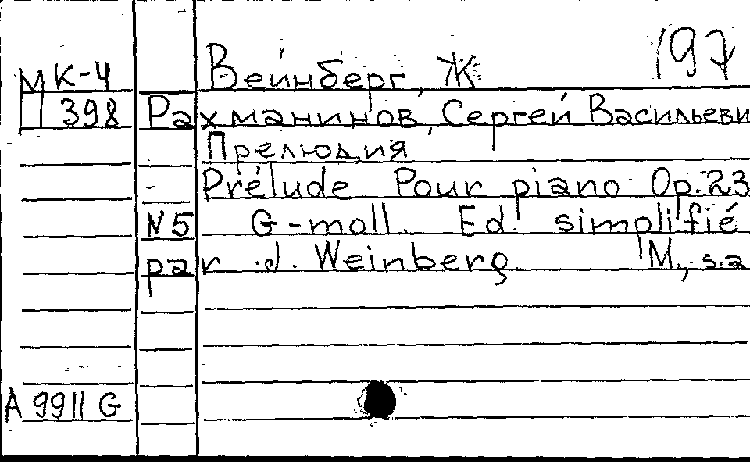 МК-4 Вейнберг, Ж 197
398 Рахманинов, Сергей Васильеви
Прелюдия
Prélude Pour piano Op.23
N5 G-moll. Ed. simplifié
par J. Weinberg. M., s.a
A 9911 G